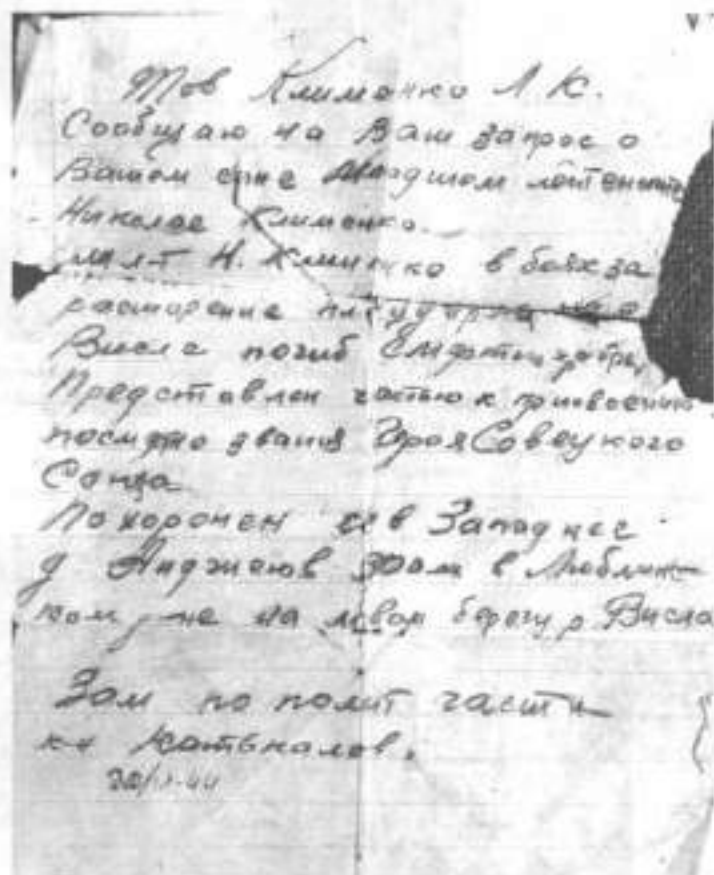 Тов Клименко Л К.
Сообщаю на Ваш запрос о
Вашем сыне Младшом лейтенанте
Николае Клименко.
мл л-т Н. Клименко в боях за
расширение плацдарма на р
Висле погиб
Представлен частью к присвоению
посмертно звания Героя Совецкого
Союза
Похоронен Западнее
д Анджеюв в Люблинс
ком на левом берегу р Висла
Зам по полит части
к-н